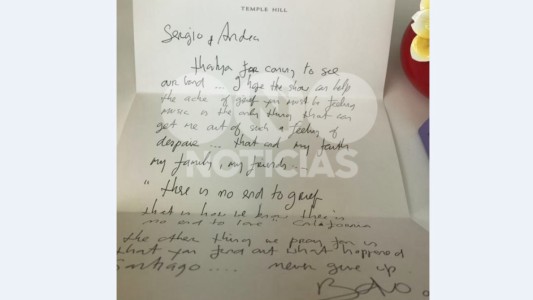 TEMPLE HILL
Sergio & Andrea
thankyou for coming to see
our band ... I hope the show can help
the ache of grief you must be feeling
music is the only thing that can
get me out of such a feeling of
despair ... that and my faith
my family, my friends...
NOTICIAS
"there is no end to grief
that is how we know there is
no end to love" California
the other thing we pray for is
that you find out what happened
Santiago .... never give up
Bono